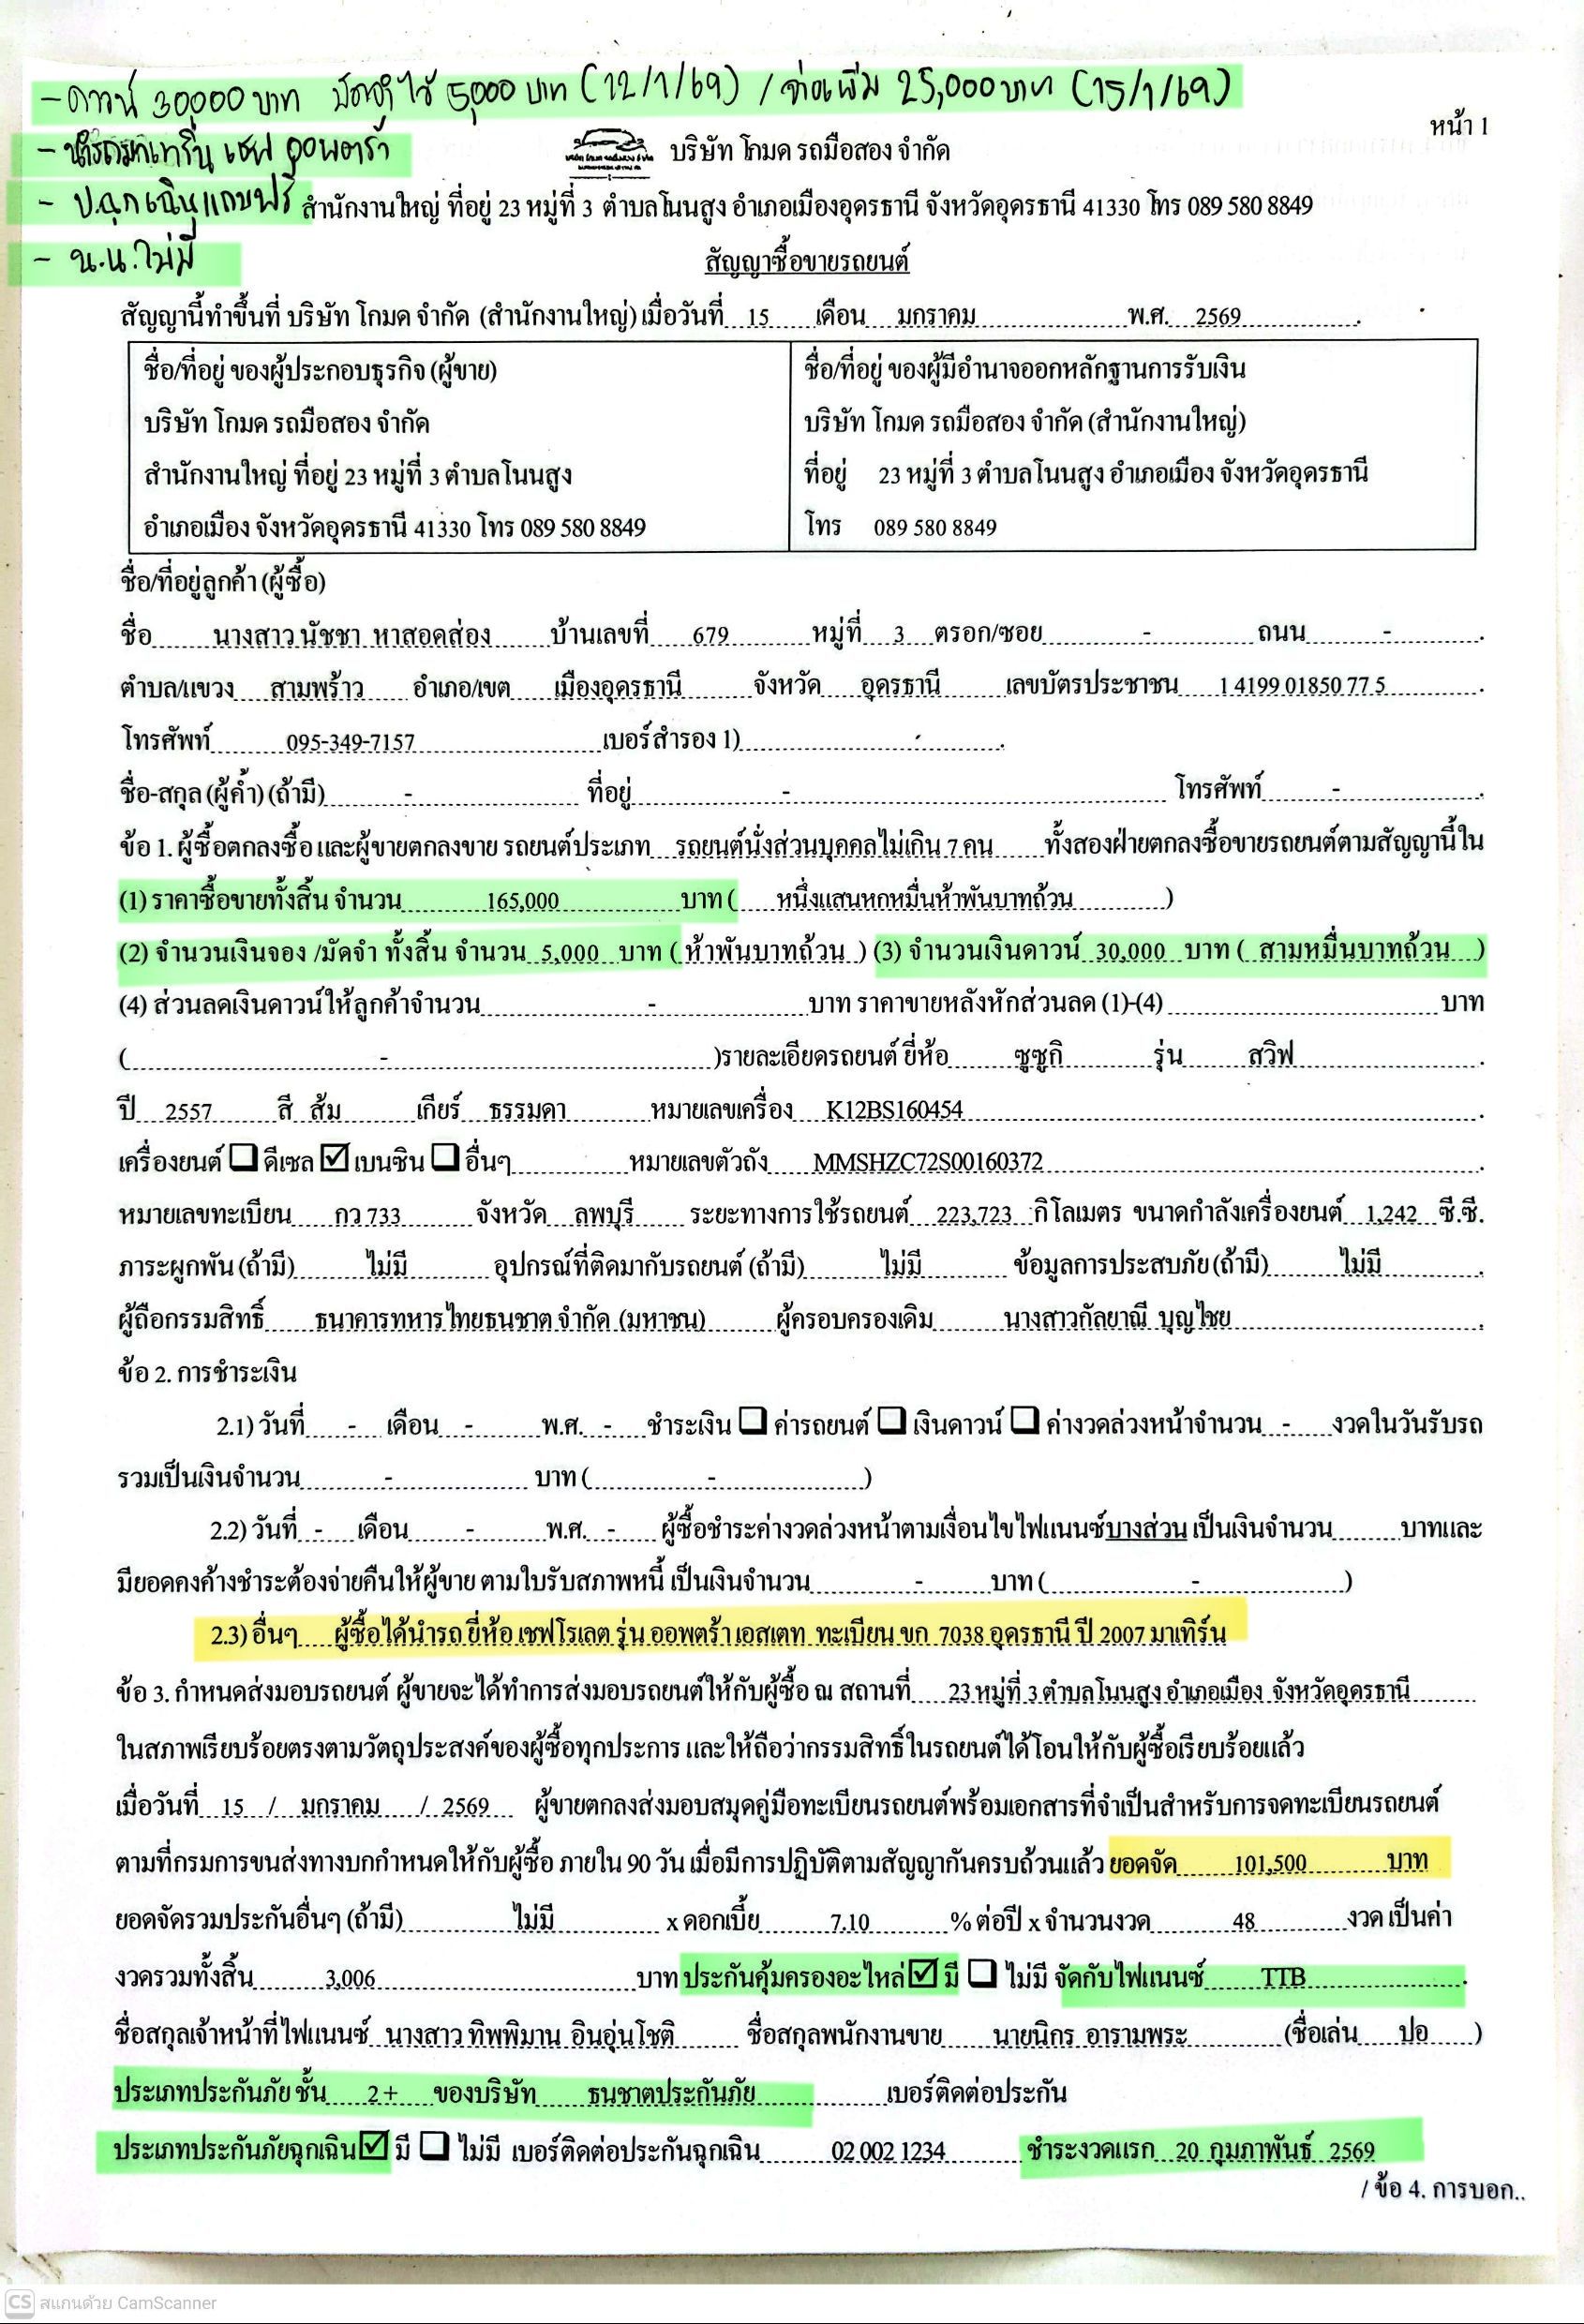 - ดาวน์ 30000 บาท มัดจำไว้ 5,000 บาท (12/1/69) / จ่ายเพิ่ม 25,000 บาท (15/1/69)
หน้า 1
- นำรถมาเทริ์น เชฟ ออพตร้า
บริษัท โกมด รถมือสอง จำกัด
- ป.ฉุกเฉินแถมฟรี
สำนักงานใหญ่ ที่อยู่ 23 หมู่ที่ 3 ตำบลโนนสูง อำเภอเมืองอุดรธานี จังหวัดอุดรธานี 41330 โทร 089 580 8849
- น.น.ไม่มี
สัญญาซื้อขายรถยนต์
สัญญานี้ทำขึ้นที่ บริษัท โกมด จำกัด (สำนักงานใหญ่) เมื่อวันที่ 15 เดือน มกราคม พ.ศ. 2569
ชื่อ/ที่อยู่ ของผู้ประกอบธุรกิจ (ผู้ขาย)
บริษัท โกมด รถมือสอง จำกัด
สำนักงานใหญ่ ที่อยู่ 23 หมู่ที่ 3 ตำบลโนนสูง
อำเภอเมือง จังหวัดอุดรธานี 41330 โทร 089 580 8849
ชื่อ/ที่อยู่ ของผู้มีอำนาจออกหลักฐานการรับเงิน
บริษัท โกมด รถมือสอง จำกัด (สำนักงานใหญ่)
ที่อยู่ 23 หมู่ที่ 3 ตำบลโนนสูง อำเภอเมือง จังหวัดอุดรธานี
โทร 089 580 8849
ชื่อ/ที่อยู่ลูกค้า (ผู้ซื้อ)
ชื่อ นางสาว นัชชา หาสอดส่อง บ้านเลขที่ 679 หมู่ที่ 3 ตรอก/ซอย - ถนน -
ตำบล/แขวง สามพร้าว อำเภอ/เขต เมืองอุดรธานี จังหวัด อุดรธานี เลขบัตรประชาชน 1 4199 01850 77 5
โทรศัพท์ 095-349-7157 เบอร์สำรอง 1)
ชื่อ-สกุล (ผู้ค้ำ) (ถ้ามี) - ที่อยู่ - โทรศัพท์ -
ข้อ 1. ผู้ซื้อตกลงซื้อ และผู้ขายตกลงขาย รถยนต์ประเภท รถยนต์นั่งส่วนบุคคลไม่เกิน 7 คน ทั้งสองฝ่ายตกลงซื้อขายรถยนต์ตามสัญญานี้ใน
(1) ราคาซื้อขายทั้งสิ้น จำนวน 165,000 บาท ( หนึ่งแสนหกหมื่นห้าพันบาทถ้วน )
(2) จำนวนเงินจอง /มัดจำ ทั้งสิ้น จำนวน 5,000 บาท ( ห้าพันบาทถ้วน ) (3) จำนวนเงินดาวน์ 30,000 บาท ( สามหมื่นบาทถ้วน )
(4) ส่วนลดเงินดาวน์ให้ลูกค้าจำนวน - บาท ราคาขายหลังหักส่วนลด (1)-(4) บาท
( - )รายละเอียดรถยนต์ ยี่ห้อ ซูซูกิ รุ่น สวิฟ
ปี 2557 สี ส้ม เกียร์ ธรรมดา หมายเลขเครื่อง K12BS160454
เครื่องยนต์ ☐ ดีเซล ☑ เบนซิน ☐ อื่นๆ หมายเลขตัวถัง MMSHZC72S00160372
หมายเลขทะเบียน กว 733 จังหวัด ลพบุรี ระยะทางการใช้รถยนต์ 223,723 กิโลเมตร ขนาดกำลังเครื่องยนต์ 1,242 ซี.ซี.
ภาระผูกพัน (ถ้ามี) ไม่มี อุปกรณ์ที่ติดมากับรถยนต์ (ถ้ามี) ไม่มี ข้อมูลการประสบภัย (ถ้ามี) ไม่มี
ผู้ถือกรรมสิทธิ์ ธนาคารทหารไทยธนชาต จำกัด (มหาชน) ผู้ครอบครองเดิม นางสาวกัลยาณี บุญไชย
ข้อ 2. การชำระเงิน
2.1) วันที่ - เดือน - พ.ศ. - ชำระเงิน ☐ ค่ารถยนต์ ☐ เงินดาวน์ ☐ ค่างวดล่วงหน้าจำนวน - งวดในวันรับรถ
รวมเป็นเงินจำนวน - บาท ( - )
2.2) วันที่ - เดือน - พ.ศ. - ผู้ซื้อชำระค่างวดล่วงหน้าตามเงื่อนไขไฟแนนซ์บางส่วน เป็นเงินจำนวน บาทและ
มียอดคงค้างชำระต้องจ่ายคืนให้ผู้ขาย ตามใบรับสภาพหนี้ เป็นเงินจำนวน - บาท ( - )
2.3) อื่นๆ ผู้ซื้อได้นำรถ ยี่ห้อ เชฟโรเลต รุ่น ออพตร้า เอสเตท ทะเบียน ขก 7038 อุดรธานี ปี 2007 มาเทิร์น
ข้อ 3. กำหนดส่งมอบรถยนต์ ผู้ขายจะได้ทำการส่งมอบรถยนต์ให้กับผู้ซื้อ ณ สถานที่ 23 หมู่ที่ 3 ตำบลโนนสูง อำเภอเมือง จังหวัดอุดรธานี
ในสภาพเรียบร้อยตรงตามวัตถุประสงค์ของผู้ซื้อทุกประการ และให้ถือว่ากรรมสิทธิ์ในรถยนต์ได้โอนให้กับผู้ซื้อเรียบร้อยแล้ว
เมื่อวันที่ 15 / มกราคม / 2569 ผู้ขายตกลงส่งมอบสมุดคู่มือทะเบียนรถยนต์พร้อมเอกสารที่จำเป็นสำหรับการจดทะเบียนรถยนต์
ตามที่กรมการขนส่งทางบกกำหนดให้กับผู้ซื้อ ภายใน 90 วัน เมื่อมีการปฏิบัติตามสัญญากันครบถ้วนแล้ว ยอดจัด 101,500 บาท
ยอดจัดรวมประกันอื่นๆ (ถ้ามี) ไม่มี x ดอกเบี้ย 7.10 % ต่อปี x จำนวนงวด 48 งวด เป็นค่า
งวดรวมทั้งสิ้น 3,006 บาท ประกันคุ้มครองอะไหล่ ☑ มี ☐ ไม่มี จัดกับไฟแนนซ์ TTB
ชื่อสกุลเจ้าหน้าที่ไฟแนนซ์ นางสาว ทิพพิมาน อินอุ่นโชติ ชื่อสกุลพนักงานขาย นายนิกร อารามพระ (ชื่อเล่น ปอ )
ประเภทประกันภัย ชั้น 2+ ของบริษัท ธนชาตประกันภัย เบอร์ติดต่อประกัน
ประเภทประกันภัยฉุกเฉิน ☑ มี ☐ ไม่มี เบอร์ติดต่อประกันฉุกเฉิน 02 002 1234 ชำระงวดแรก 20 กุมภาพันธ์ 2569
/ ข้อ 4. การบอก..
CS สแกนด้วย CamScanner